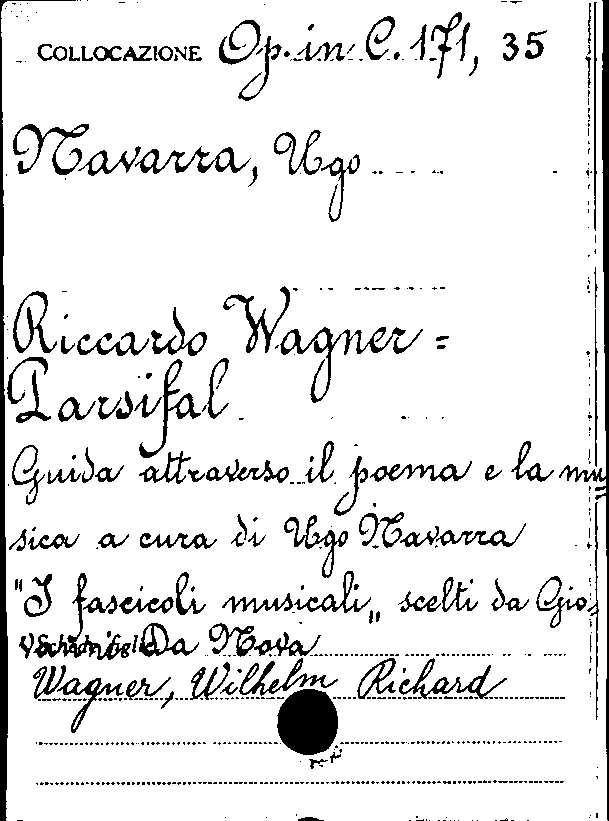 COLLOCAZIONE Op. in C. 171, 35
Navarra, Ugo
Riccardo Wagner =
Parsifal
Guida attraverso il poema e la mu=
sica a cura di Ugo Navarra
"I fascicoli musicali„ scelti da Gio=
vanni Da Nova
Wagner, Wilhelm Richard